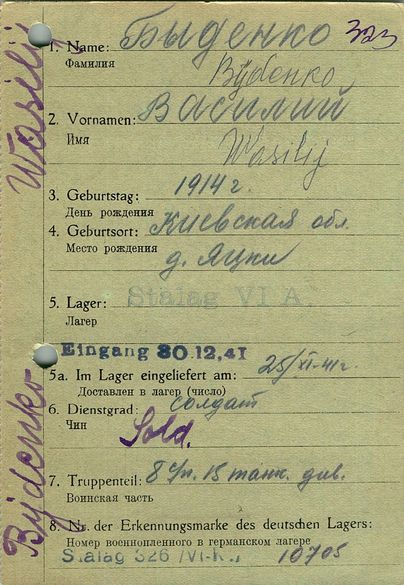 Wasilij
Bydenko
323
1. Name: Быденко
Фамилия
Bydenko
2. Vornamen: Василий
Имя
Wasilij
3. Geburtstag: 1914 г.
День рождения
4. Geburtsort: Киевская обл.
Место рождения
д. Яцки
5. Lager: Stalag VI A.
Лагер
Eingang 30.12.41
5a. Im Lager eingeliefert am: 25/XI-41г.
Доставлен в лагер (число)
6. Dienstgrad: солдат
Чин
Sold.
7. Truppenteil: 8 15 танк. див.
Воинская часть
8. Nr. der Erkennungsmarke des deutschen Lagers:
Номер военнопленного в германском лагере
Stalag 326 /VI-K./ 10705